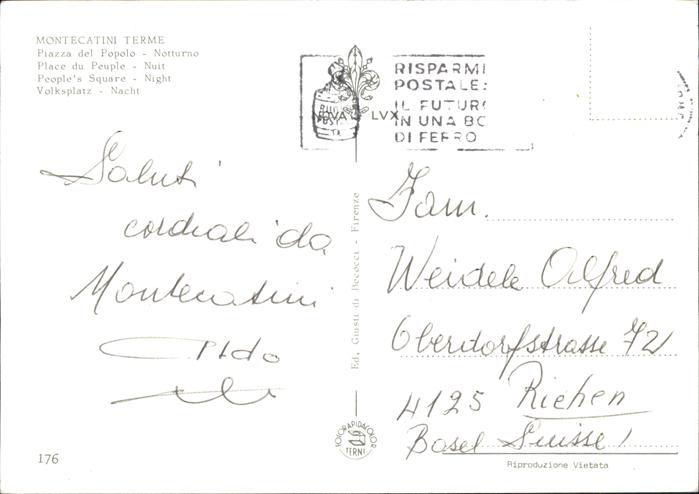 MONTECATINI TERME
Piazza del Popolo - Notturno
Place du Peuple - Nuit
People's Square - Night
Volksplatz - Nacht
RISPARMI
POSTALE:
IL FUTURO
IN UNA BO
DI FERRO
NOVA LUX
Saluti
cordiali da
Montecatini
Aldo
Ed. Giusti di Becocci - Firenze
Fam.
Weidele Alfred
Oberdorfstrasse 72
4125 Riehen
Basel Suisse!
FOTORAPIDACOLOR
TERNI
176
Riproduzione Vietata